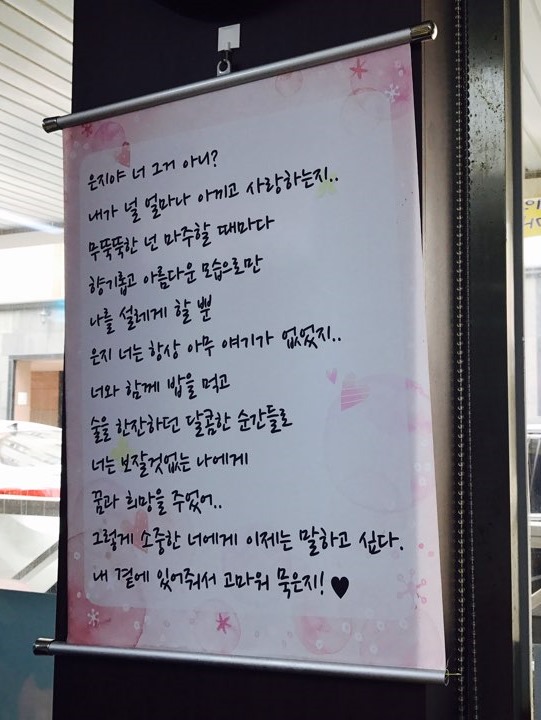 은지야 너 그거 아니?
내가 널 얼마나 아끼고 사랑하는지..
무뚝뚝한 넌 마주할 때마다
향기롭고 아름다운 모습으로만
나를 설레게 할 뿐
은지 너는 항상 아무 얘기가 없었지..
너와 함께 밥을 먹고
술을 한잔하던 달콤한 순간들로
너는 보잘것없는 나에게
꿈과 희망을 주었어..
그렇게 소중한 너에게 이제는 말하고 싶다.
내 곁에 있어줘서 고마워 묵은지! ♥